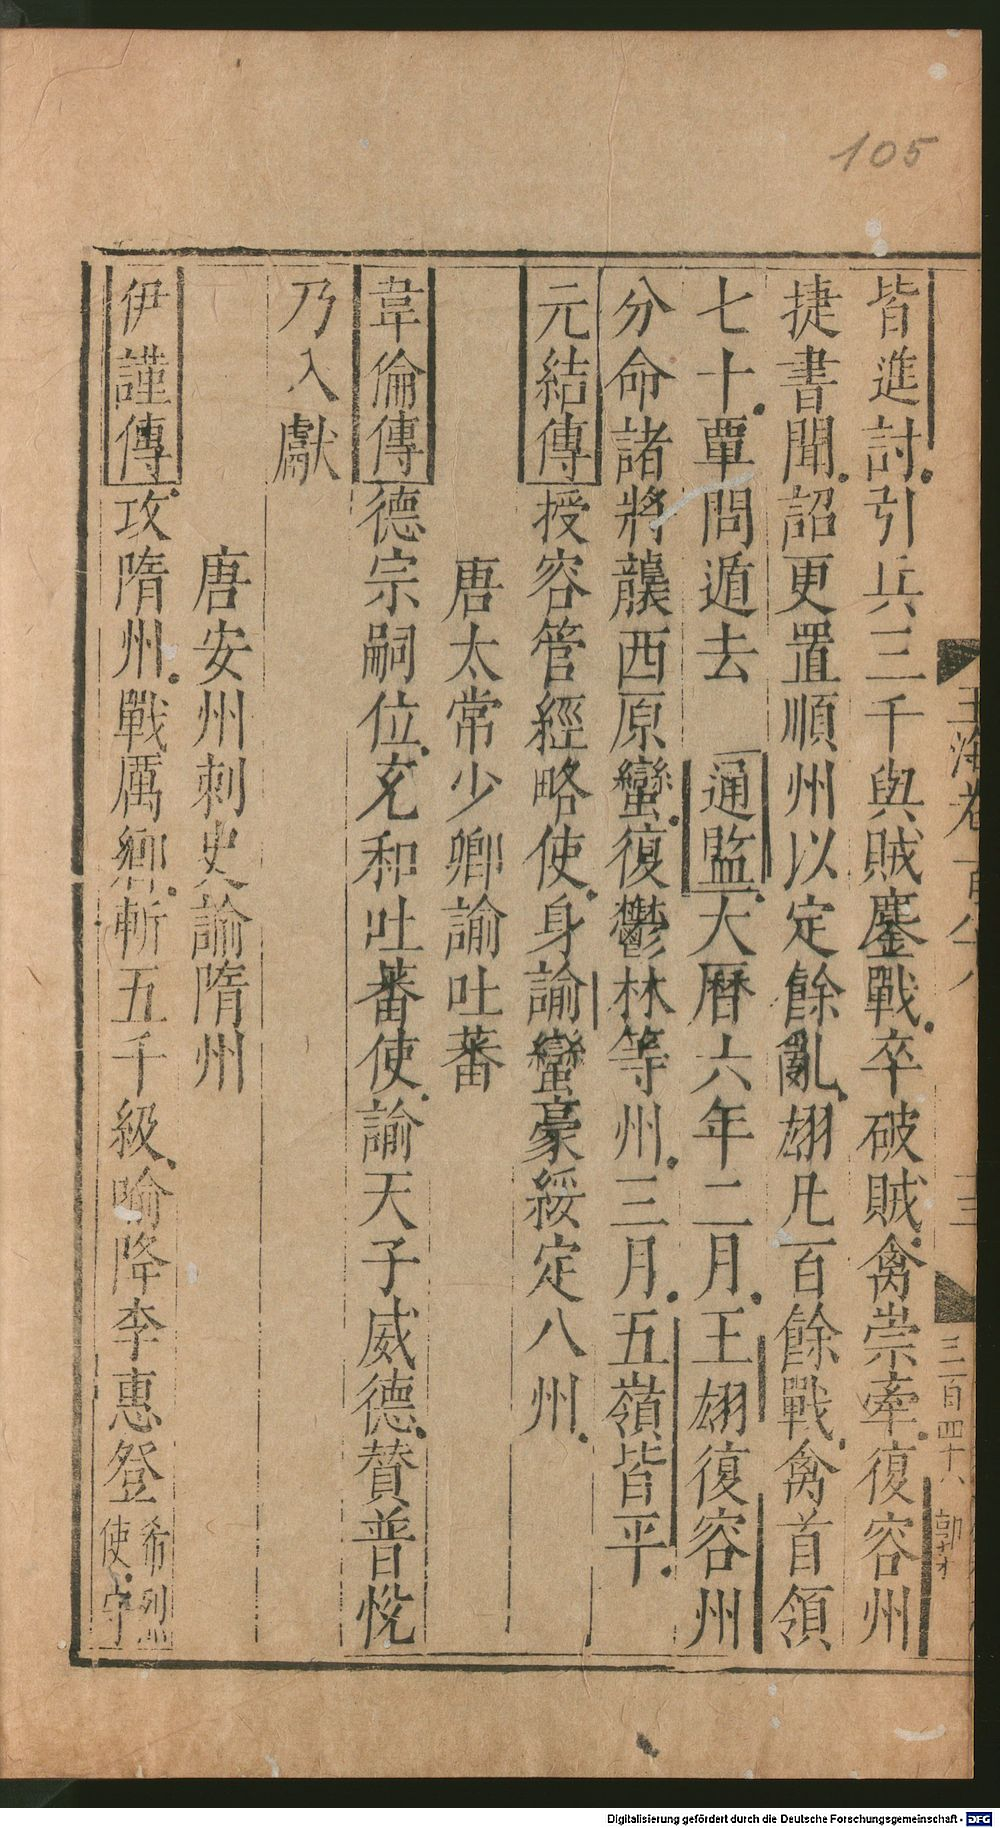 105
玉海卷一百八
三
三百四十八
皆進討引兵三千與賊鏖戰卒破賊禽崇牽復容州
捷書聞詔更置順州以定餘亂翃凡百餘戰禽首領
七十覃問遁去 通監大曆六年二月王翃復容州
分命諸將襲西原蠻復鬱林等州三月五嶺皆平
元結傳授容管經略使身諭蠻豪綏定八州
唐太常少卿諭吐蕃
韋倫傳德宗嗣位充和吐蕃使諭天子威德贊普悅
乃入獻
唐安州刺史諭隋州
伊謹傳攻隋州戰厲鄉斬五千級喻降李惠登希烈
使守
Digitalisierung gefördert durch die Deutsche Forschungsgemeinschaft - DFG